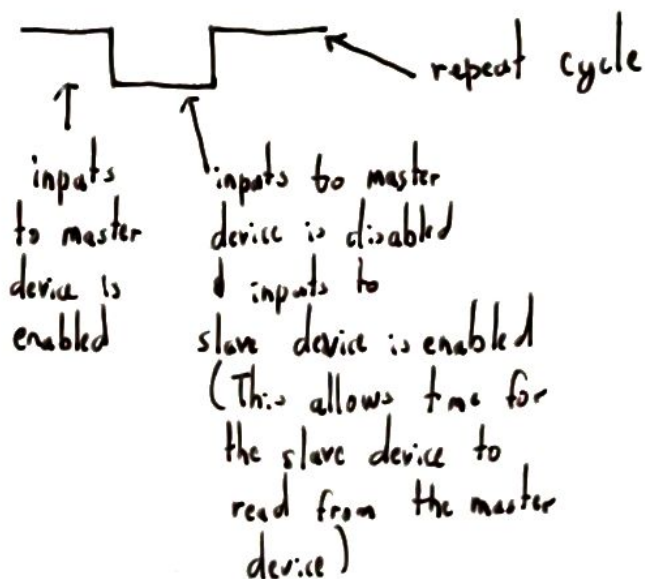 repeat cycle
inputs
to master
device is
enabled
inputs to master
device is disabled
& inputs to
slave device is enabled
(This allows time for
the slave device to
read from the master
device)